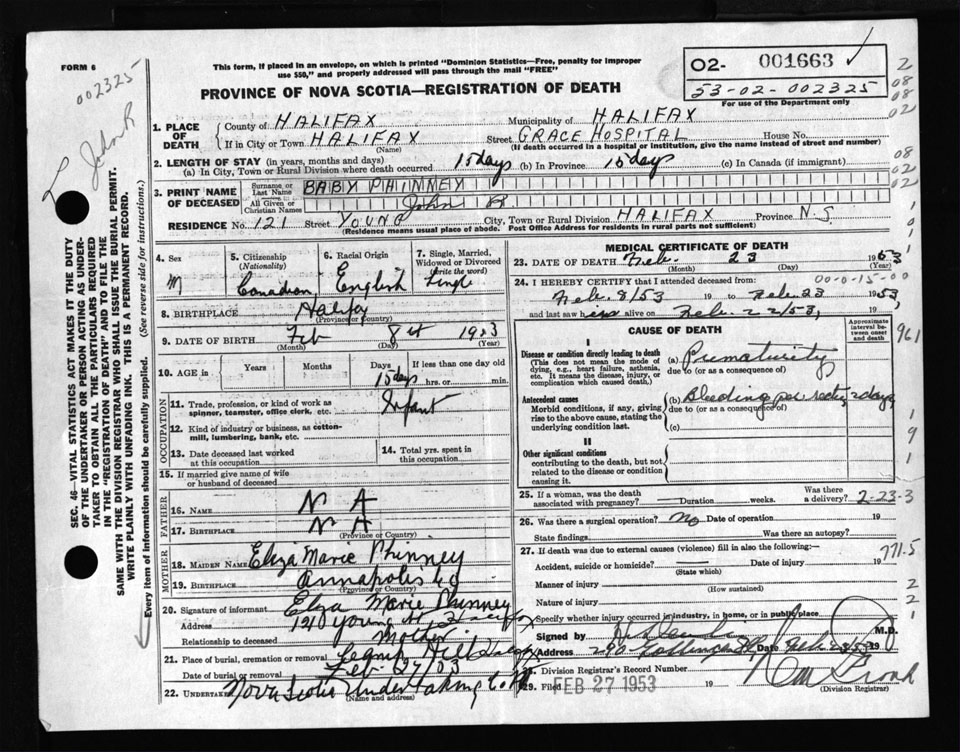 FORM 6
This form, if placed in an envelope, on which is printed "Dominion Statistics—Free, penalty for improper
use $50," and properly addressed will pass through the mail "FREE"
O2- 001663
53-02-002325
For use of the Department only
PROVINCE OF NOVA SCOTIA—REGISTRATION OF DEATH
002325
John R
2
08
08
02
08
02
SEC. 46—VITAL STATISTICS ACT MAKES IT THE DUTY
OF THE UNDERTAKER OR PERSON ACTING AS UNDER-
TAKER TO OBTAIN ALL THE PARTICULARS REQUIRED
IN THE "REGISTRATION OF DEATH" AND TO FILE THE
SAME WITH THE DIVISION REGISTRAR WHO SHALL ISSUE THE BURIAL PERMIT.
WRITE PLAINLY WITH UNFADING INK. THIS IS A PERMANENT RECORD.
Every item of information should be carefully supplied. (See reverse side for instructions.)
1. PLACE OF DEATH
County of HALIFAX Municipality of HALIFAX
If in City or Town HALIFAX Street GRACE HOSPITAL House No.
(Name) (If death occurred in a hospital or institution, give the name instead of street and number)
2. LENGTH OF STAY (in years, months and days)
(a) In City, Town or Rural Division where death occurred 15 days (b) In Province 15 days (c) In Canada (if immigrant)
3. PRINT NAME OF DECEASED
Surname or Last Name BABY PHINNEY
All Given or Christian Names John R
RESIDENCE No. 121 Street YOUNG City, Town or Rural Division HALIFAX Province N.S.
(Residence means usual place of abode. Post Office Address for residents in rural parts not sufficient)
4. Sex M
5. Citizenship (Nationality) Canadian
6. Racial Origin English
7. Single, Married, Widowed or Divorced (Write the word) Single
8. BIRTHPLACE Halifax
(Province or Country)
9. DATE OF BIRTH Feb 8 1953
(Month) (Day) (Year)
10. AGE in Years Months Days If less than one day old
15 days hrs. or min.
OCCUPATION
11. Trade, profession or kind of work as spinner, teamster, office clerk, etc. Infant
12. Kind of industry or business, as cotton-mill, lumbering, bank, etc.
13. Date deceased last worked at this occupation
14. Total yrs. spent in this occupation
15. If married give name of wife or husband of deceased
FATHER
16. Name N A
17. Birthplace N A
(Province or Country)
MOTHER
18. MAIDEN NAME Eliza Marie Phinney
19. BIRTHPLACE Annapolis Co
(Province or Country)
20. Signature of informant Elza Marie Phinney
Address Young St Halifax
Relationship to deceased Mother
21. Place of burial, cremation or removal
Date of burial or removal Feb. 27/53
22. UNDERTAKER Nova Scotia Undertaking Co
(Name and address)
MEDICAL CERTIFICATE OF DEATH
23. DATE OF DEATH Feb. 23 1953
(Month) (Day) (Year)
24. I HEREBY CERTIFY that I attended deceased from: 00-0-15-00
Feb. 8/53 19 to Feb. 23 1953,
and last saw him alive on Feb. 22/53,
CAUSE OF DEATH
Approximate interval between onset and death
961
I
Disease or condition directly leading to death
(This does not mean the mode of dying, e.g., heart failure, asthenia, etc. It means the disease, injury, or complication which caused death.)
(a) Prematurity
due to (or as a consequence of)
Antecedent causes
Morbid conditions, if any, giving rise to the above cause, stating the underlying condition last.
(b) Bleeding per 2 days
due to (or as a consequence of)
(c)
II
Other significant conditions
contributing to the death, but not related to the disease or condition causing it.
1
9
1
25. If a woman, was the death associated with pregnancy? Duration weeks. Was there a delivery? 2-23-3
26. Was there a surgical operation? No Date of operation 19
State findings Was there an autopsy?
27. If death was due to external causes (violence) fill in also the following:— 771.5
Accident, suicide or homicide? Date of injury 19
(State which)
Manner of injury
(How sustained)
Nature of injury
2
2
1
Specify whether injury occurred in industry, in home, or in public place
Signed by M.D.
Address Date Feb
28. Division Registrar's Record Number
29. Filed FEB 27 1953 19
(Division Registrar)